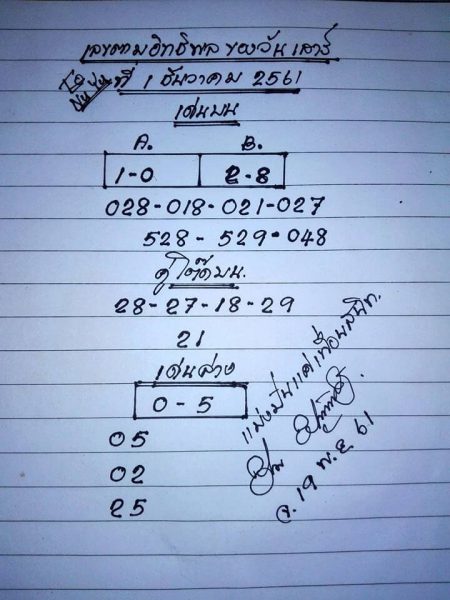 เลขตามอิทธิพลของวันเสาร์
ที่ 1 ธันวาคม 2561
เด่นบน
A. B.
1-0 2-8
028-018-021-027
528-529-048
คู่โต๊ดบน.
28-27-18-29
21
เด่นล่าง
0-5
05
02
25
แบ่งปันแด่เพื่อนสนิท.
จ.19 พ.ย 61